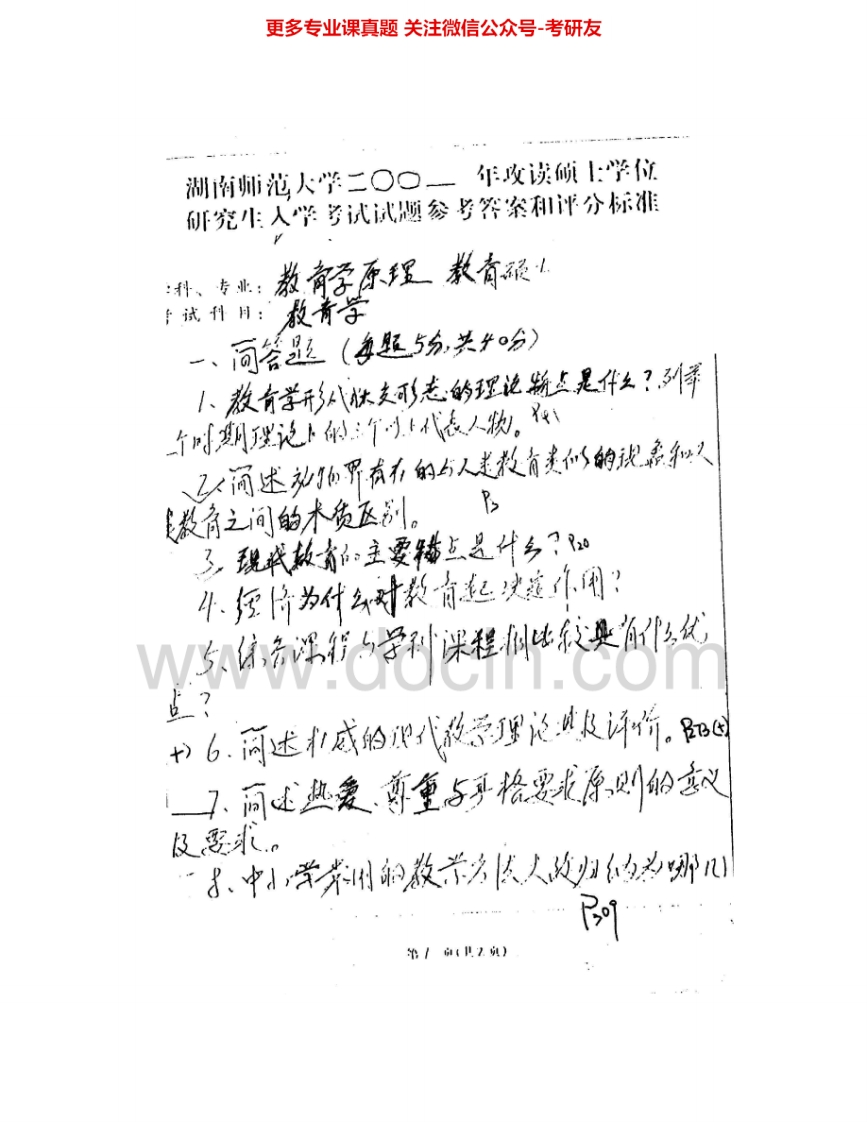 更多专业课真题 关注微信公众号-考研友
湖南师范大学二〇〇一 年攻读硕士学位
研究生入学考试试题参考答案和评分标准
科、专业: 教育学原理 教育硕士
试科目: 教育学
一、简答题 (每题5分,共40分)
1、教育学形 形态的理论特点是什么?列举
个时期理论上的三个以上代表人物。P41
2、简述动物界有存的与人类教育类似的现象和人
类教育之间的本质区别。 P3
3、现代教育的主要特点是什么?P20
4、经济为什么对教育起决定作用?
5、综合课程与学科课程相比较具有什么优
点?
6、简述 的现代教学理论 及评价。P273(上)
7、简述热爱、尊重与严格要求原则的意义
及要求。
8、中小学常用的教学方法大致归纳为哪几
P309
第1页(共2页)
www.docin.com